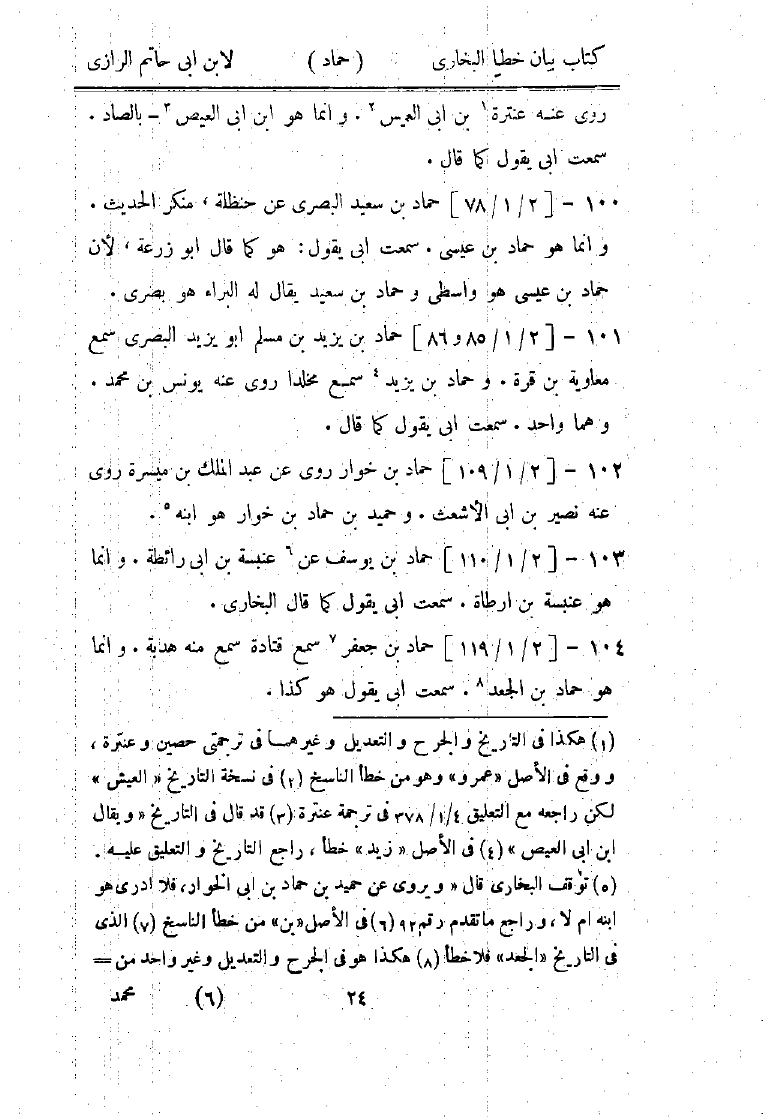 كتاب بيان خطيا البخارى (حماد) لابن ابى حاتم الرازى
روى عنه عنترة¹ بن ابى العيس² . و انما هو ابن ابى العيص³ – بالصاد .
سمعت ابى يقول كما قال .
١٠٠ – [٧٨/١/٢] حماد بن سعيد البصرى عن حنظلة ، منكر الحديث .
و انما هو حماد بن عيسى . سمعت ابى يقول : هو كما قال ابو زرعة ، لأن
حماد بن عيسى هو واسطى و حماد بن سعيد يقال له البراء هو بصرى .
١٠١ – [٨٥/١/٢ و ٨٦] حماد بن يزيد بن مسلم ابو يزيد البصرى سمع
معاوية بن قرة . و حماد بن يزيد⁴ سمع مخلدا روى عنه يونس بن محمد .
و هما واحد . سمعت ابى يقول كما قال .
١٠٢ – [١٠٩/١/٢] حماد بن خوار روى عن عبد الملك بن ميسرة روى
عنه نصير بن ابى الأشعث . و حميد بن حماد بن خوار هو ابنه⁵ .
١٠٣ – [١١٠/١/٢] حماد بن يوسف عن⁶ عنبسة بن ابى رائطة . و انما
هو عنبسة بن ارطاة . سمعت ابى يقول كما قال البخارى .
١٠٤ – [١١٩/١/٢] حماد بن جعفر⁷ سمع قتادة سمع منه هدبة . و انما
هو حماد بن الجعد⁸ . سمعت ابى يقول هو كذا .
(١) هكذا فى التاريخ و الجرح و التعديل و غيرهما فى ترجمتى حصين و عنترة ،
و وقع فى الأصل «عمرو» وهو من خطأ الناسخ (٢) فى نسخة التاريخ « العيش »
لكن راجعه مع التعليق ٣٧٨/١/٤ فى ترجمة عنترة (٣) قد قال فى التاريخ « و يقال
ابن ابى العيص » (٤) فى الأصل « زيد » خطأ ، راجع التاريخ و التعليق عليه .
(٥) توقف البخارى قال « و يروى عن حميد بن حماد بن ابى الخوار، فلا ادرى هو
ابنه ام لا ، و راجع ما تقدم رقم ٩٢ (٦) فى الأصل «بن» من خطأ الناسخ (٧) الذى
فى التاريخ «الجعد» فلا خطأ (٨) هكذا هو فى الجرح و التعديل وغير واحد من =
٢٤ (٦) محمد